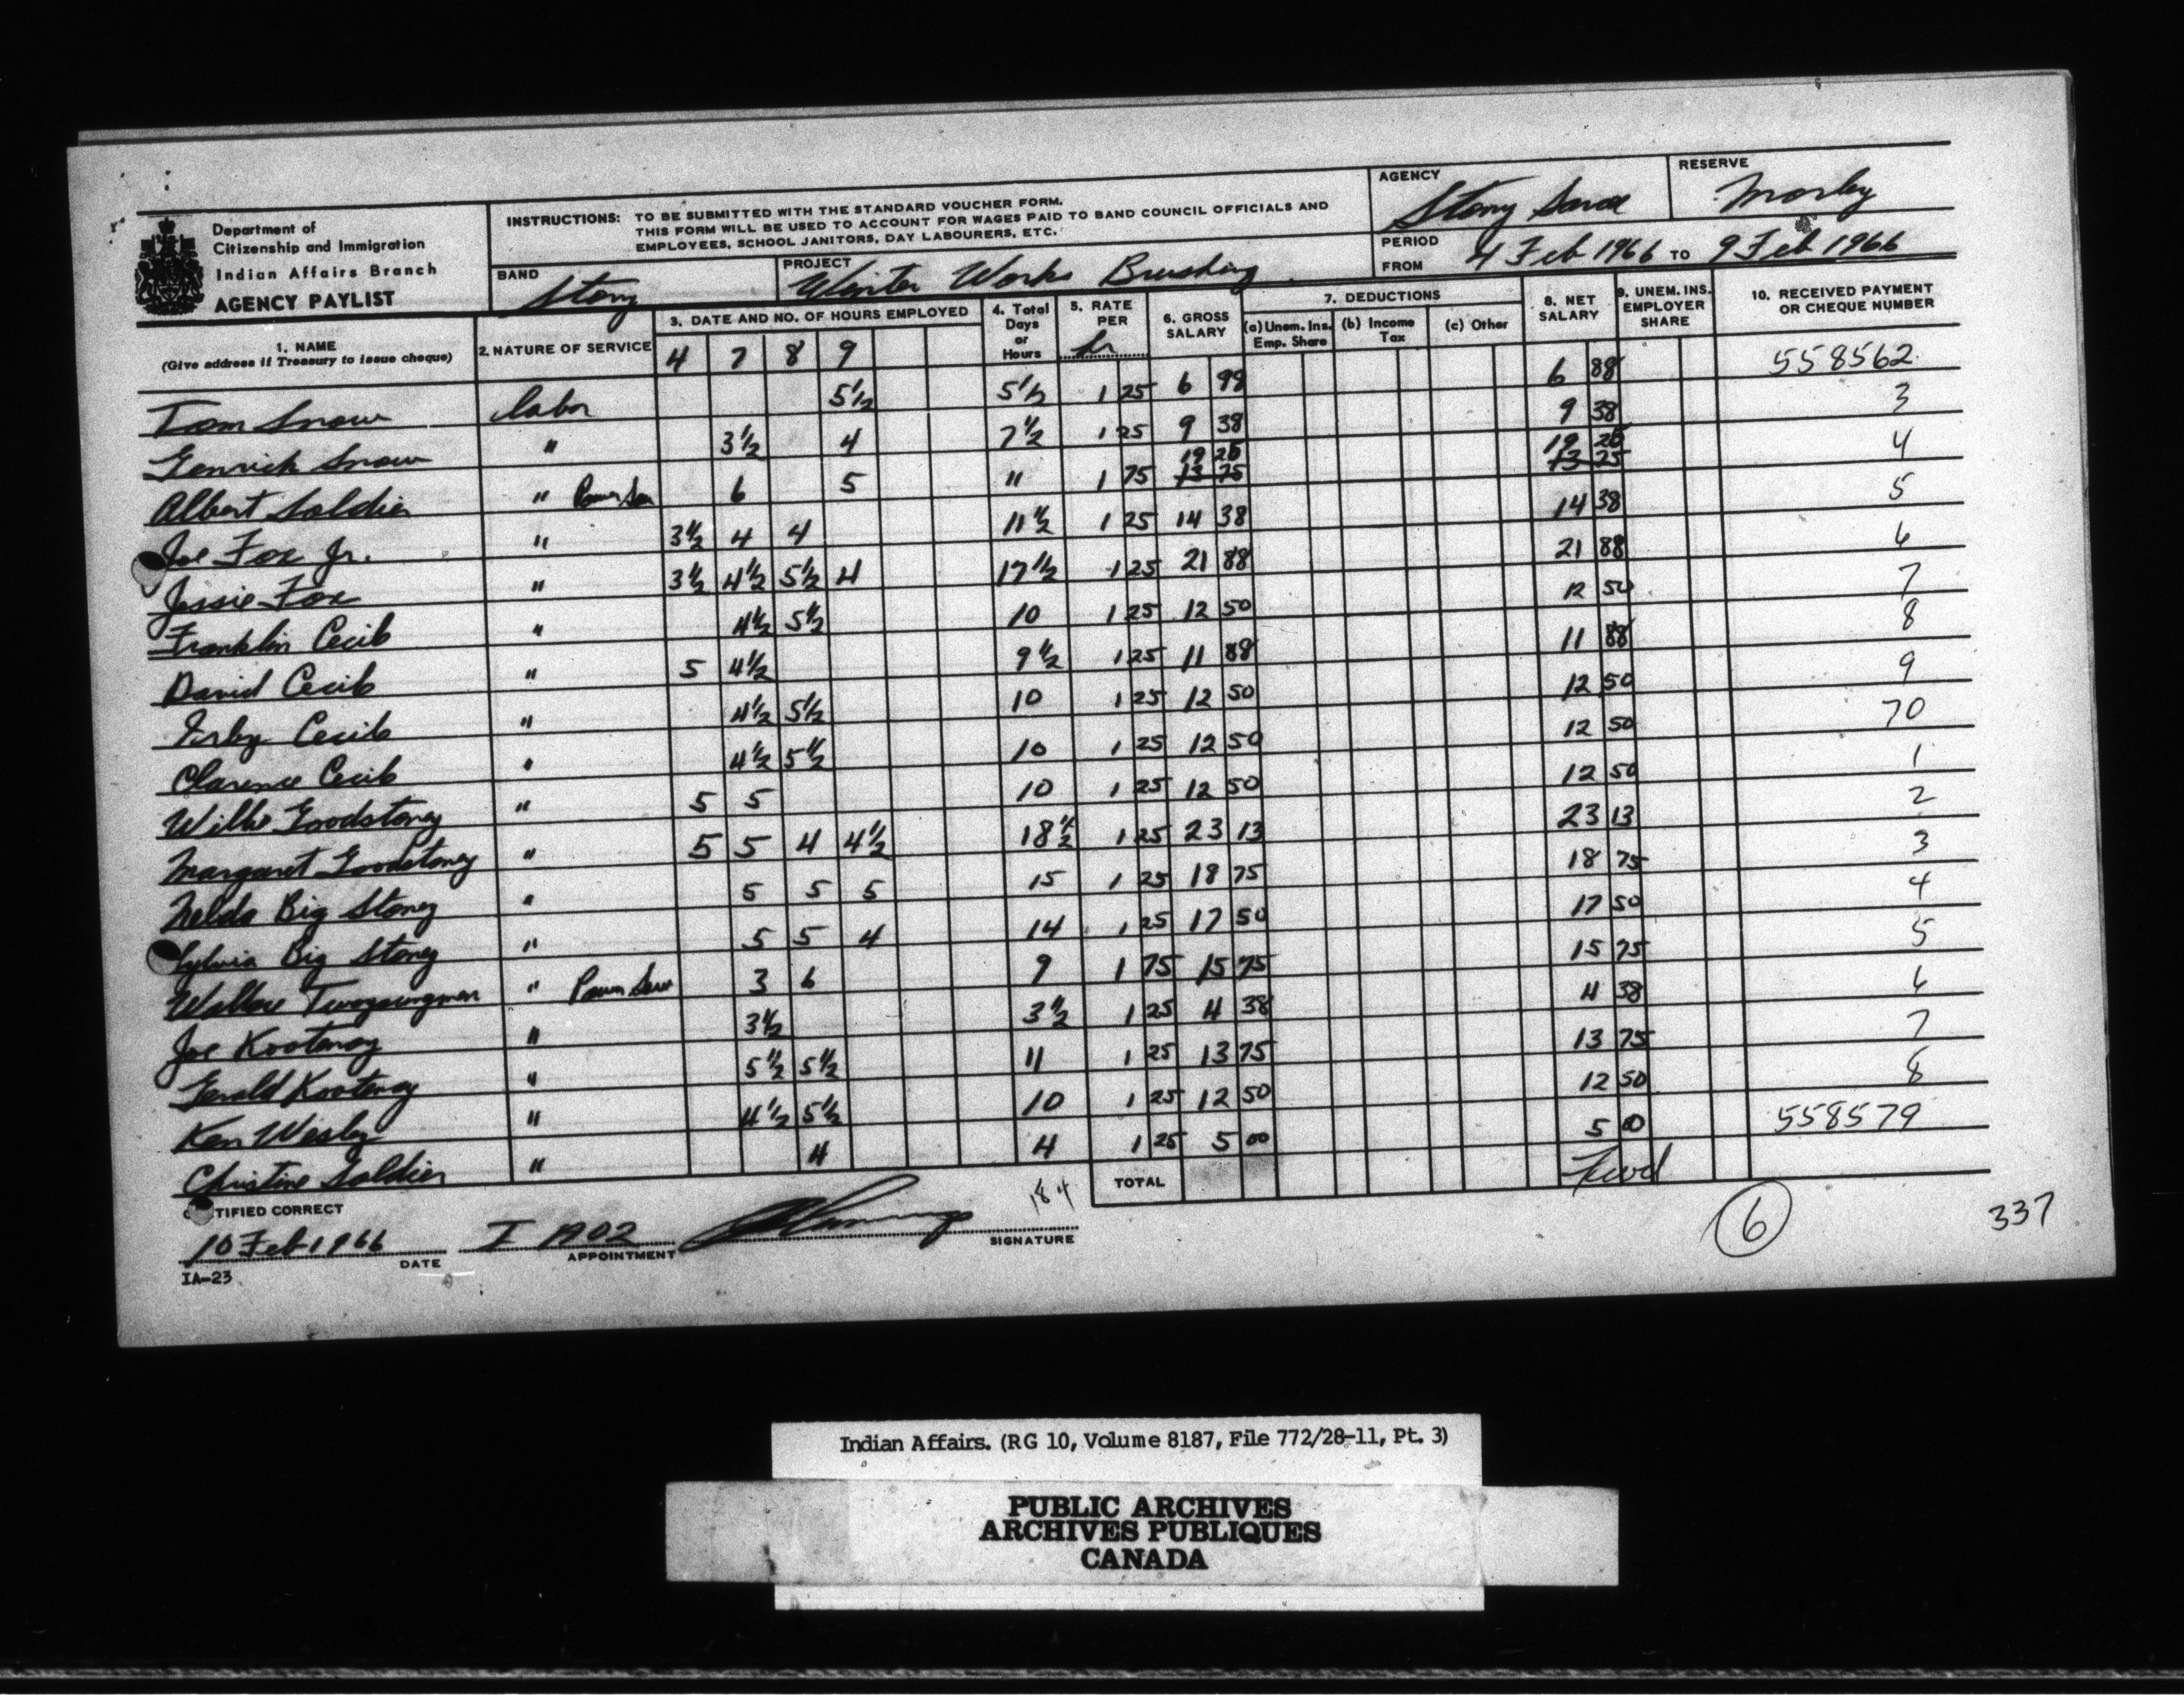 Department of
Citizenship and Immigration
Indian Affairs Branch
AGENCY PAYLIST
INSTRUCTIONS: TO BE SUBMITTED WITH THE STANDARD VOUCHER FORM.
THIS FORM WILL BE USED TO ACCOUNT FOR WAGES PAID TO BAND COUNCIL OFFICIALS AND
EMPLOYEES, SCHOOL JANITORS, DAY LABOURERS, ETC.
AGENCY Stony
RESERVE Morley
BAND Stony
PROJECT Winter Works Brushing
PERIOD FROM 4 Feb 1966 TO 9 Feb 1966
1. NAME (Give address if Treasury to issue cheque)
2. NATURE OF SERVICE
3. DATE AND NO. OF HOURS EMPLOYED
4 7 8 9
4. Total Days or Hours
5. RATE PER hr
6. GROSS SALARY
7. DEDUCTIONS
(a) Unem. Ins. Emp. Share
(b) Income Tax
(c) Other
8. NET SALARY
9. UNEM. INS. EMPLOYER SHARE
10. RECEIVED PAYMENT OR CHEQUE NUMBER
Tom Snow labor 5½ 5½ 1 25 6 88 6 88 558562
Snow " 3½ 4 7½ 1 25 9 38 9 38 3
Albert Soldier " Power Saw 6 5 11 1 75 19 25 13 75 19 25 13 25 4
Joe Fox Jr. " 3½ 4 4 11½ 1 25 14 38 14 38 5
Jessie Fox " 3½ 4½ 5½ 4 17½ 1 25 21 88 21 88 6
Franklin Cecil " 4½ 5½ 10 1 25 12 50 12 50 7
David Cecil " 5 4½ 9½ 1 25 11 88 11 88 8
Cecil " 4½ 5½ 10 1 25 12 50 12 50 9
Clarence Cecil " 4½ 5½ 10 1 25 12 50 12 50 70
Willie Goodstoney " 5 5 10 1 25 12 50 12 50 1
Margaret Goodstoney " 5 5 4 4½ 18½ 1 25 23 13 23 13 2
Nelda Big Stoney " 5 5 5 15 1 25 18 75 18 75 3
Sylvia Big Stoney " 5 5 4 14 1 25 17 50 17 50 4
Wallace Twoyoungmen " Power Saw 3 6 9 1 75 15 75 15 75 5
Joe Kootenay " 3½ 3½ 1 25 4 38 4 38 6
Gerald Kootenay " 5½ 5½ 11 1 25 13 75 13 75 7
Ken Wesley " 4½ 5½ 10 1 25 12 50 12 50 8
Christine Soldier " 4 4 1 25 5 00 5 00 558579
TOTAL Fwd
TIFIED CORRECT
184
10 Feb 1966 DATE
APPOINTMENT
SIGNATURE
IA-23
6
337
Indian Affairs. (RG 10, Volume 8187, File 772/28-11, Pt. 3)
PUBLIC ARCHIVES
ARCHIVES PUBLIQUES
CANADA